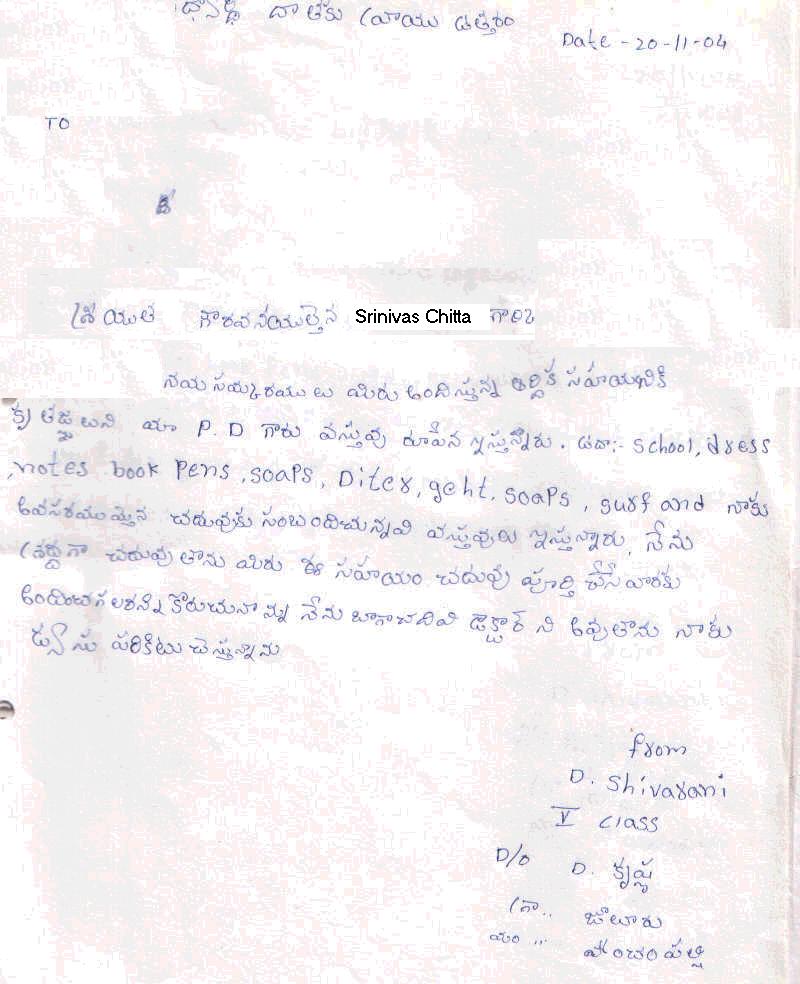 దాతకు వ్రాయు ఉత్తరం
Date - 20-11-04
TO
శ్రీ యుత గౌరవనీయులైన Srinivas Chitta గారికి
నమస్కారములు మీరు అందిస్తున్న ఆర్థిక సహాయానికి
కృతజ్ఞులని మా P. D గారు వస్తువు రూపేన ఇస్తున్నారు. ఉదా:- school, dress
,notes book Pens, soaps, Diter, geht, soaps, surf and నాకు
అవసరముమైన చదువుకు సంబందించున్నవి వస్తువులు ఇస్తున్నారు, నేను
శ్రద్దగా చదువుతాను మీరు ఈ సహాయం చదువు పూర్తి చేసే వారకు
అందించగలరని కోరుచున్నాను నేను బాగా చదివి డాక్టార్ ని అవుతాను నాకు
డ్యాన్సు పరికిటు చేస్తున్నాను
from
D. Shivarani
V class
D/o D. కృష్ణ
గ్రా.. జూలూరు
మం... పోచంపల్లి